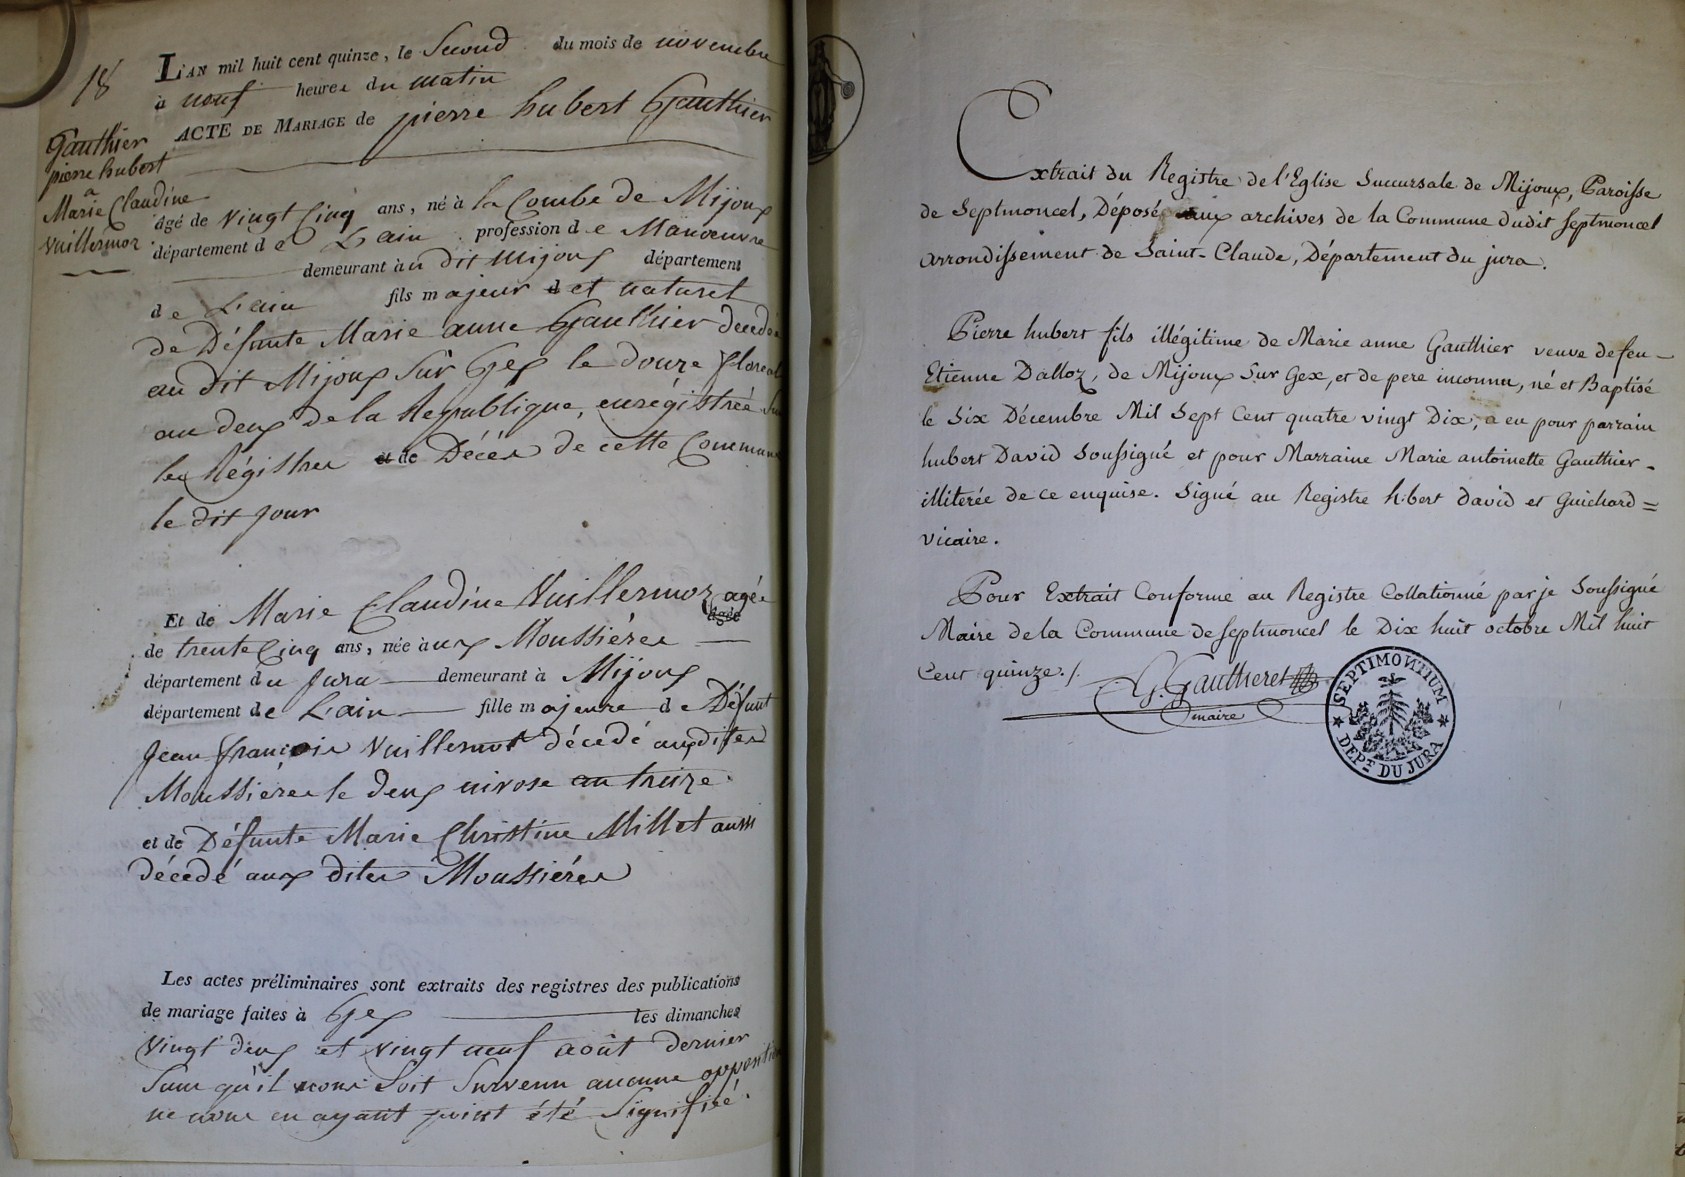 18
L'AN mil huit cent quinze, le Second du mois de novembre
à neuf heures du matin
ACTE DE MARIAGE de pierre hubert Gauthier
Gauthier
pierre hubert
a
Marie Claudine
Vuillermoz
âgé de Vingt Cinq ans, né à la Combe de Mijoux
département de L'ain profession de Manoeuvre
demeurant au dit Mijoux département
de L'ain fils majeur et naturel
de Défunte Marie anne Gauthier décédée
au dit Mijoux Sur Gex le douze floreal
an deux de la Republique, enrégistrée Sur
les Régistres de Décés de cette Commune
le dit jour
Et de Marie Claudine Vuillermoz agée
de trente Cinq ans, née aux Moussiéres
département du Jura demeurant à Mijoux
département de L'ain fille majeure de Défunt
Jean françois Vuillermoz décédé auxdites
Moussieres le deux nivose an treize
et de Défunte Marie Christine Millet aussi
décédé aux dites Moussiéres
Les actes préliminaires sont extraits des registres des publications
de mariage faites à Gex les dimanches
Vingt deux et vingt neuf août dernier
Sans qu'il nous Soit Survenu aucune opposition
ne nous en ayant point été Signifié.
Extrait du Registre de l'Eglise Succursale de Mijoux, Paroisse
de Septmoncel, Déposé aux archives de la Commune dudit Septmoncel
arrondissement de Saint-Claude, Département du jura.
Pierre hubert fils illégitime de Marie anne Gauthier veuve de feu
Etienne Dalloz, de Mijoux Sur Gex, et de pere inconnu, né et Baptisé
le Six Décembre Mil Sept Cent quatre vingt Dix, a eu pour parrain
hubert David Soussigné et pour Marraine Marie antoinette Gauthier
illiterée de ce enquise. Signé au Registre h:bert David et Guichard =
vicaire.
Pour Extrait Conforme au Registre Collationné par je Soussigné
Maire de la Commune de Septmoncel le Dix huit octobre Mil huit
Cent quinze./.
G. Gautheret
maire
SEPTIMONTIUM
DEPT DU JURA